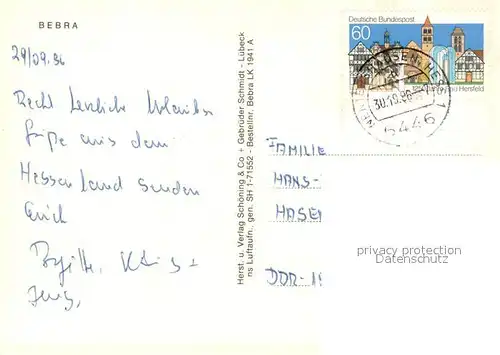 BEBRA
29/09.86
Recht herzliche Urlaubs
grüße aus dem
Hessenland senden
Euch
Brgitte, Klaus +
Jens
Herst. u. Verlag Schöning & Co + Gebrüder Schmidt - Lübeck
ns Luftaufn., gen. SH 1-71552 - Bestellnr. Bebra LK 1941 A
Deutsche Bundespost
60
Hersfeld
HAUSEN, HESS
1
6446
FAMILIE
HANS-
HASE
DDR-
privacy protection
Datenschutz